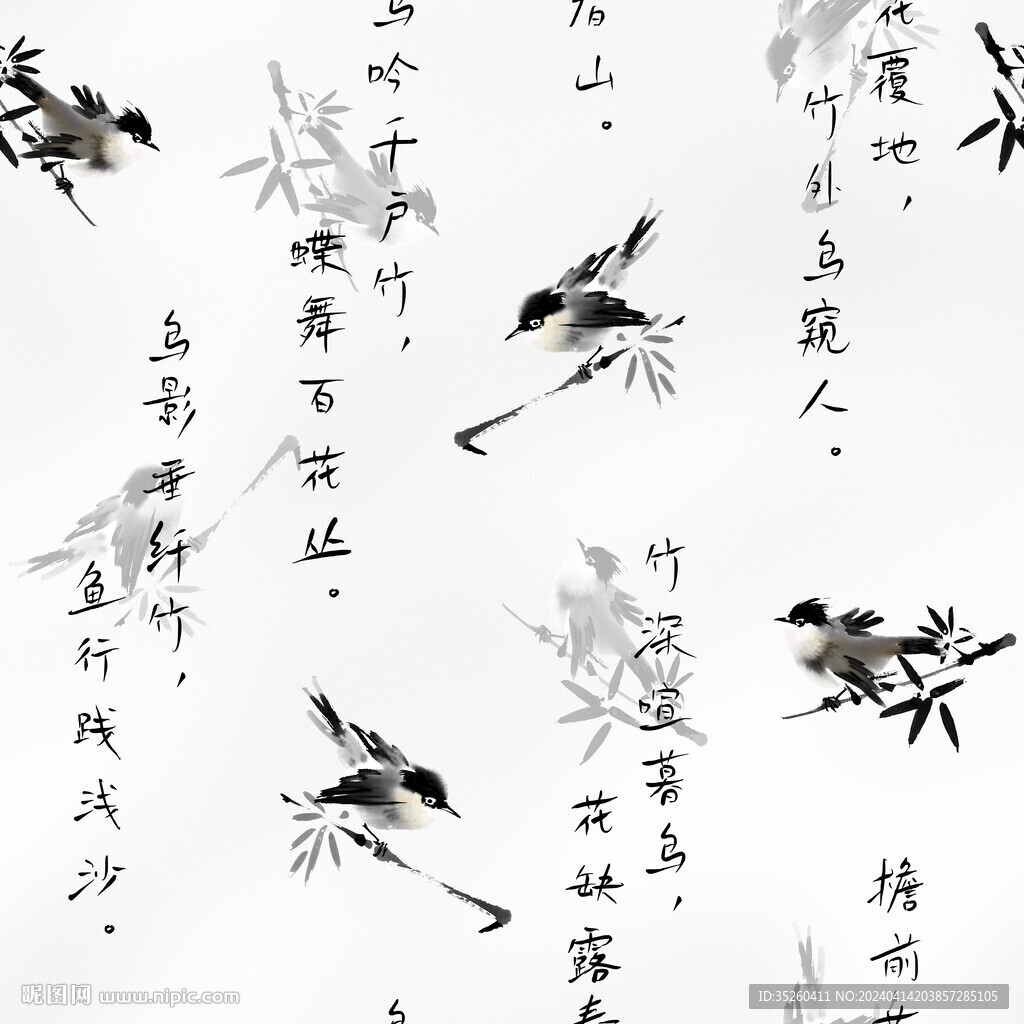 花覆地，
竹外鸟窥人。
檐前
竹深喧暮鸟，
山。
花缺露春
鸟吟千户竹，
蝶舞百花丛。
鸟影垂纤竹，
鱼行践浅沙。
昵图网 www.nipic.com
ID:35260411 NO:20240414203857285105